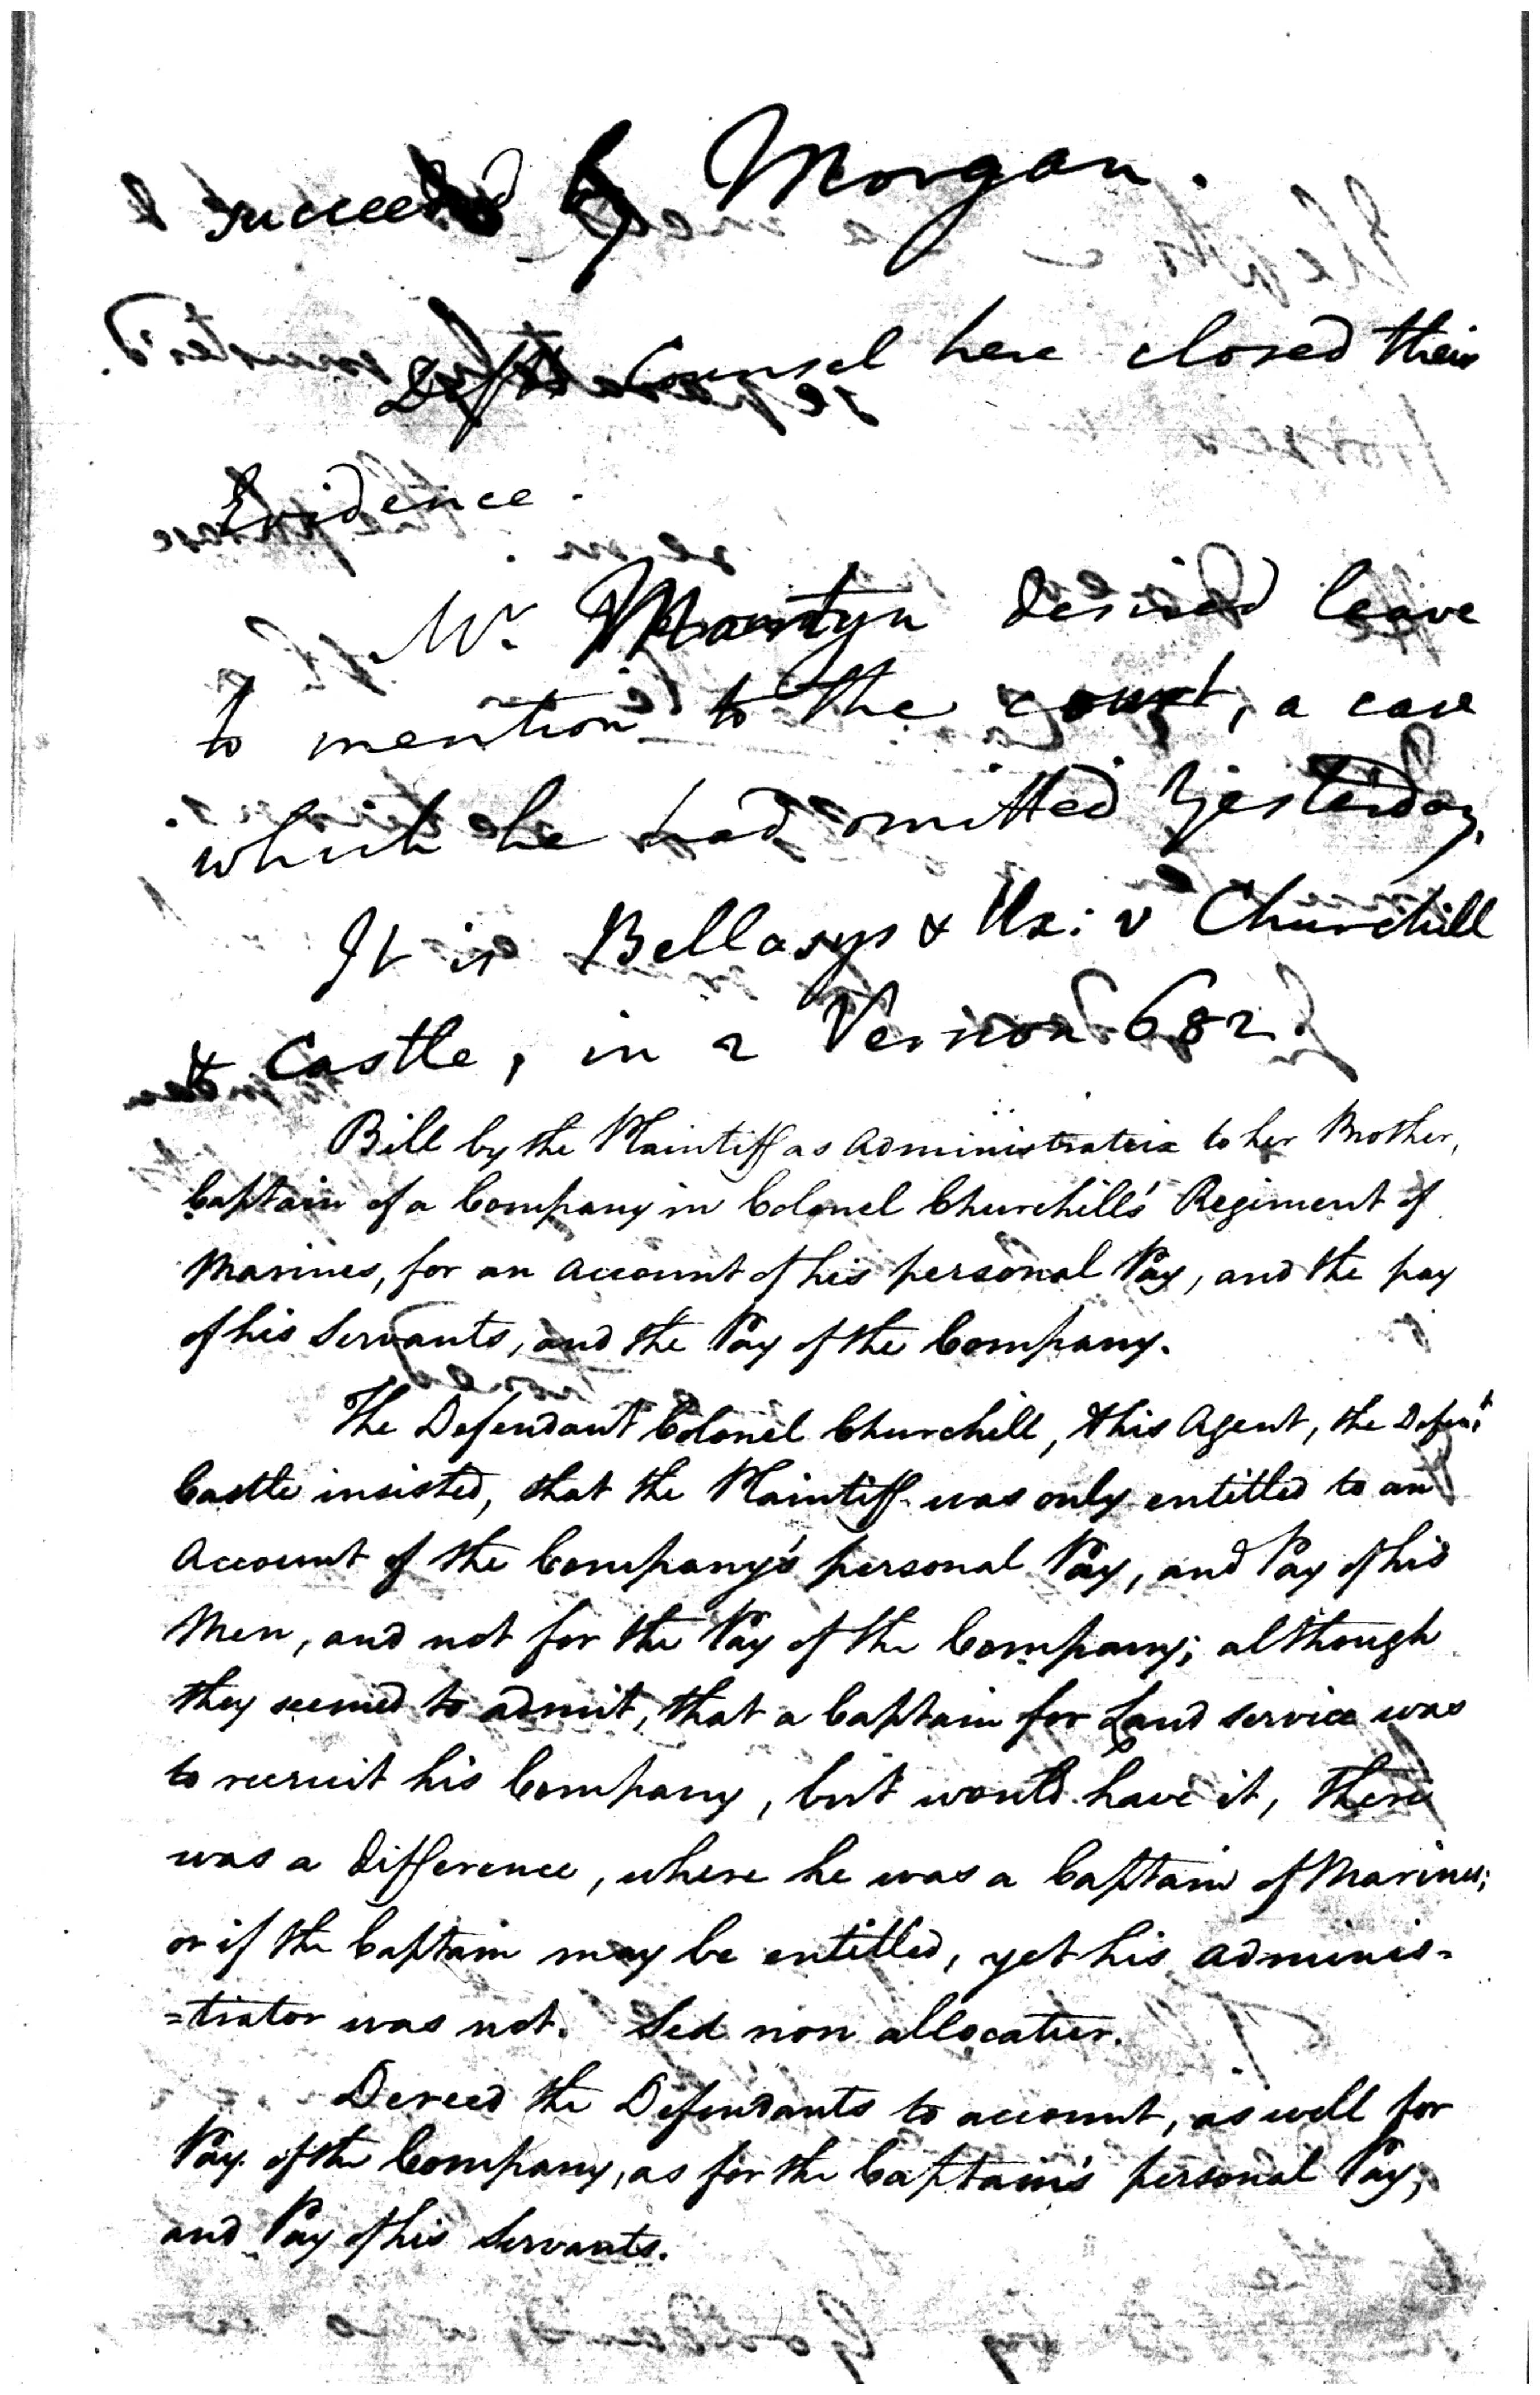 succeeded by Morgan.
Defts Counsel here closed their
Evidence.
Mr. Martyn desired leave
to mention to the court, a case
which he had omitted Yesterday.
It is Bellasys & Ux: v Churchill
& Castle, in 2 Vernon 682.
Bill by the Plaintiff as Administratrix to her Brother,
Captain of a Company in Colonel Churchill's Regiment of
Marines, for an account of his personal Pay, and the pay
of his Servants, and the Pay of the Company.
The Defendant Colonel Churchill, & his Agent, the Defent
Castle insisted, that the Plaintiff was only entitled to an
Account of the Company's personal Pay, and Pay of his
Men, and not for the Pay of the Company; although
they seemed to admit, that a Captain for Land service was
to recruit his Company, but would have it, there
was a difference, where he was a Captain of Marines;
or if the Captain may be entitled, yet his adminis=
=trator was not. Sed non allocatur.
Decreed the Defendants to account, as well for
Pay of the Company, as for the Captain's personal Pay,
and Pay of his Servants.